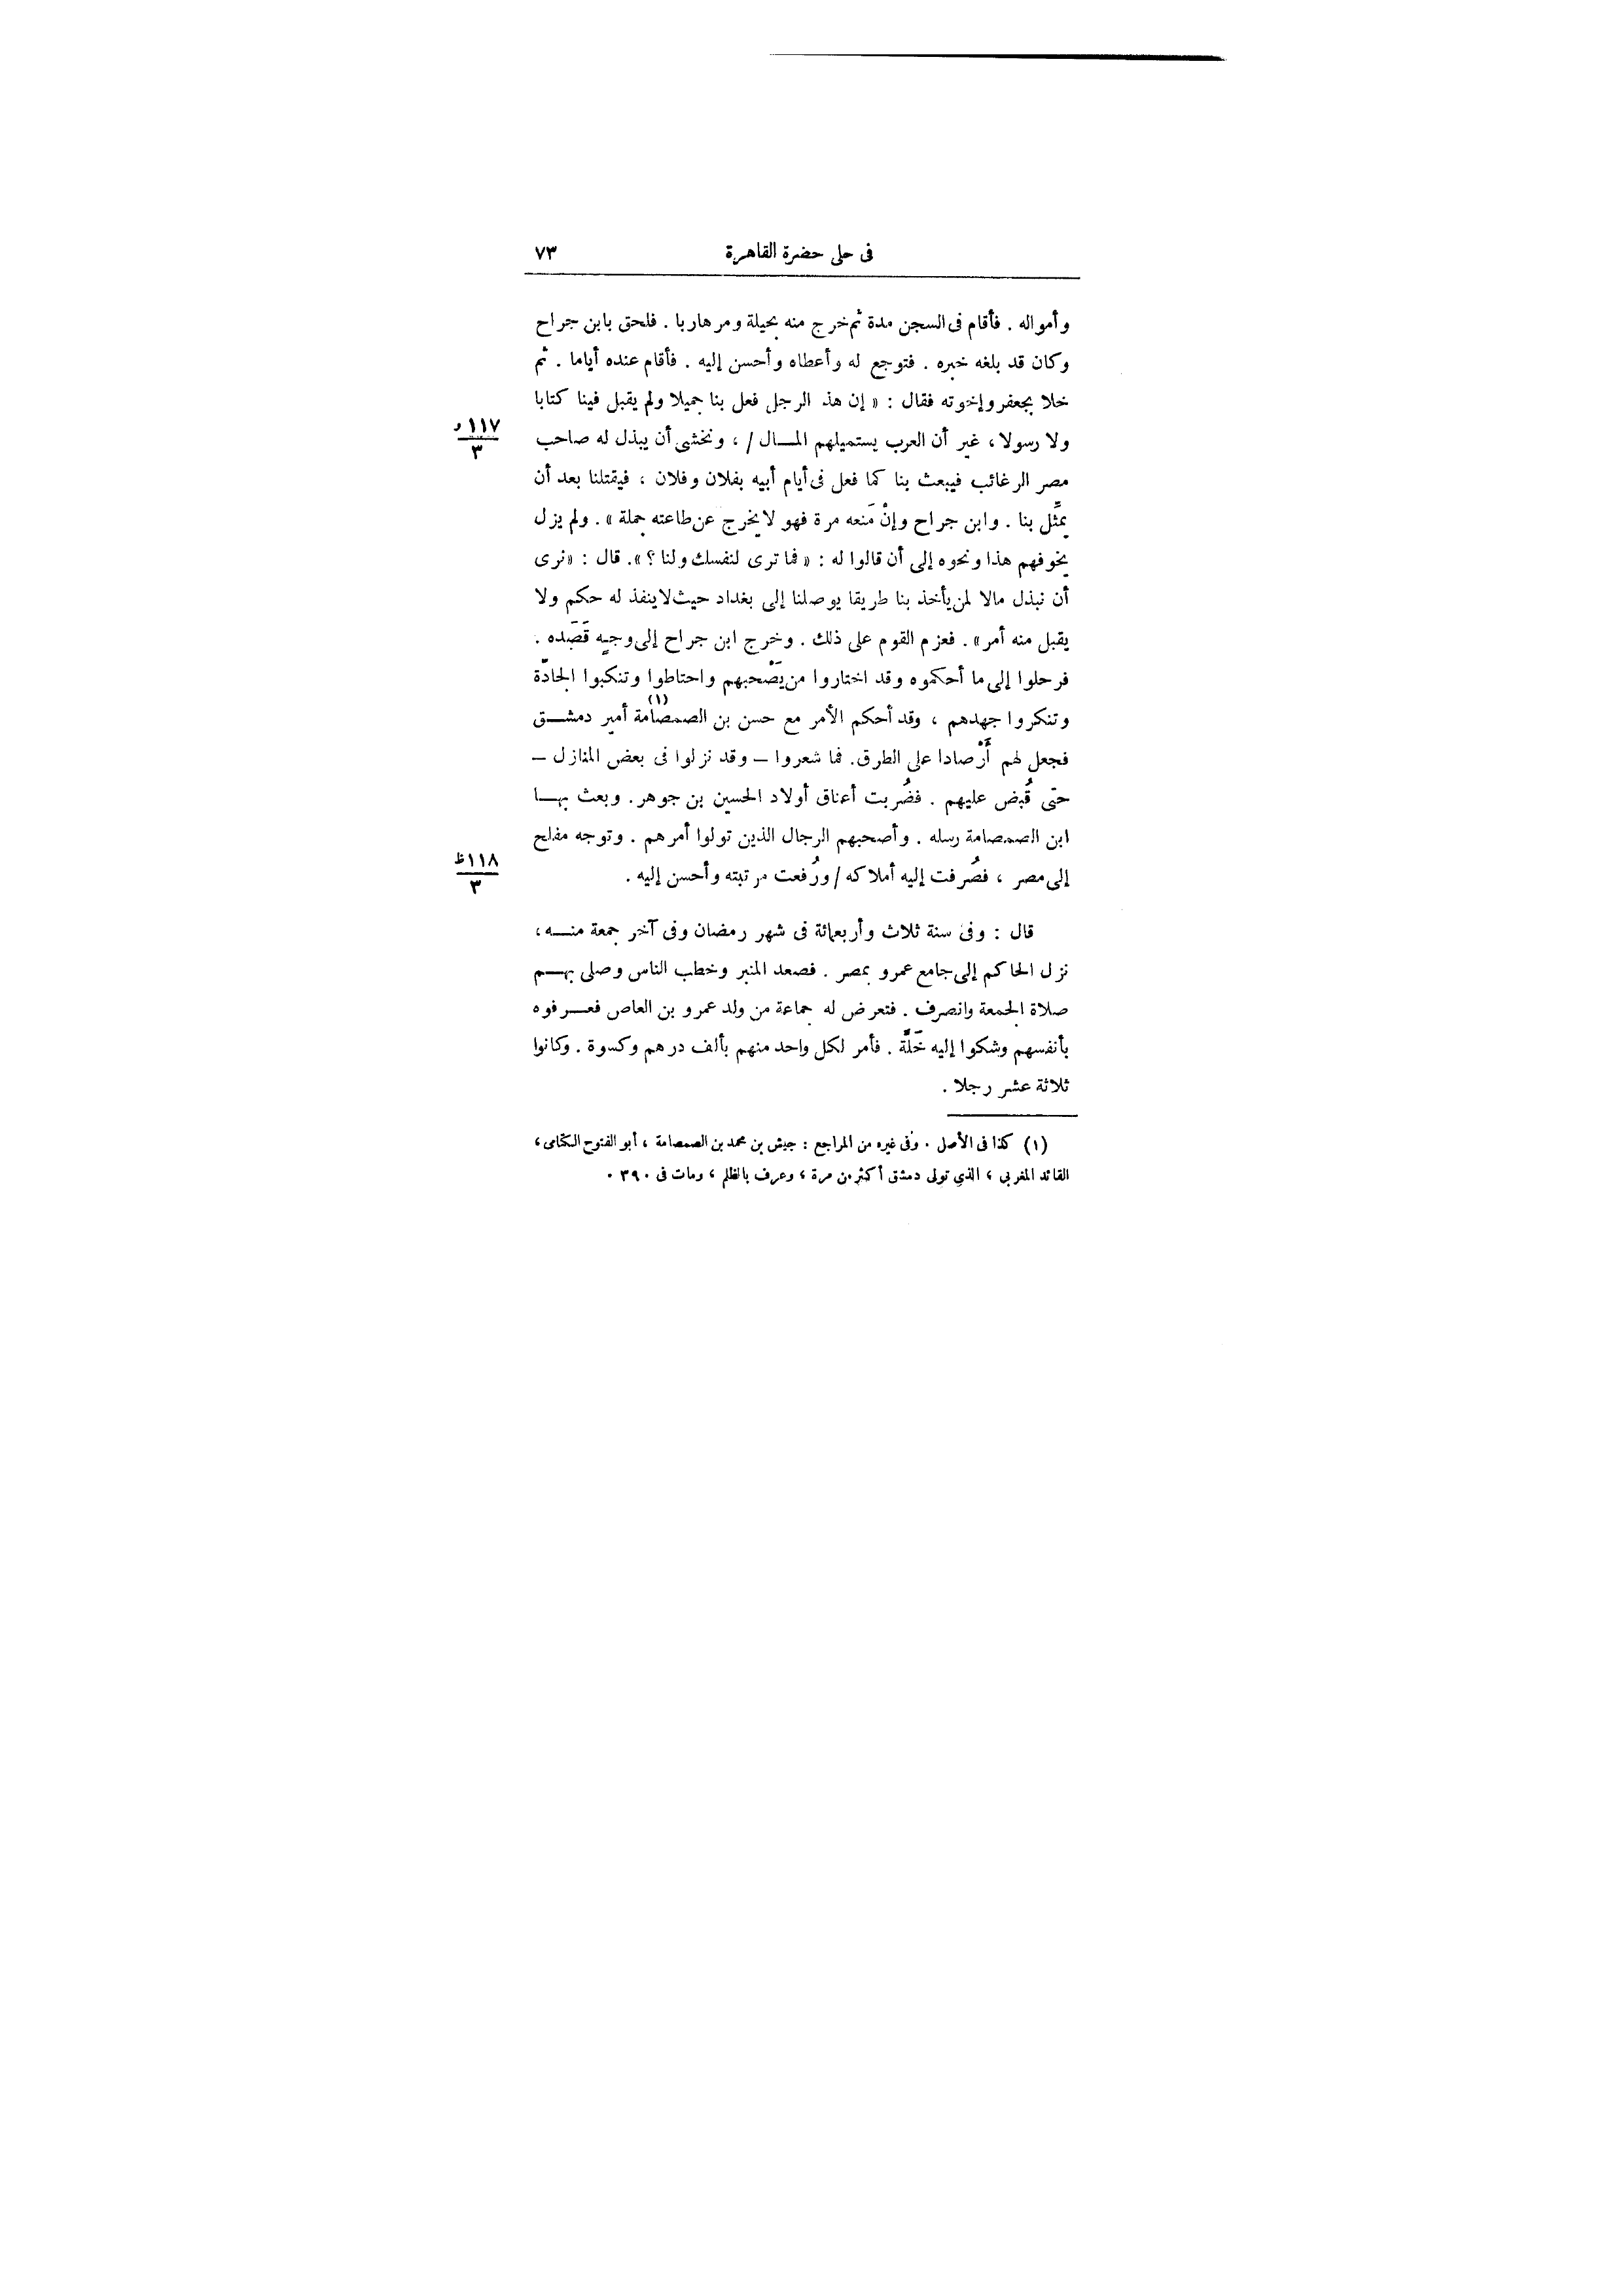 فى حلى حضرة القاهرة ٧٣
وأمواله . فأقام فى السجن مدة ثم خرج منه بحيلة ومر هاربا . فلحق بابن جراح
وكان قد بلغه خبره . فتوجع له وأعطاه وأحسن إليه . فأقام عنده أياما . ثم
خلا بجعفر وإخوته فقال : « إن هذ الرجل فعل بنا جميلا ولم يقبل فينا كتابا
١١٧ و
٣
ولا رسولا ، غير أن العرب يستميلهم المـــال / ، ونخشى أن يبذل له صاحب
مصر الرغائب فيبعث بنا كما فعل فى أيام أبيه بفلان وفلان ، فيقتلنا بعد أن
يمثِّل بنا . وابن جراح وإنْ مَنعه مرة فهو لا يخرج عن طاعته جملة » . ولم يزل
يخوفهم هذا ونحوه إلى أن قالوا له : « فما ترى لنفسك ولنا ؟ » . قال : « نرى
أن نبذل مالا لمن يأخذ بنا طريقا يوصلنا إلى بغداد حيث لا ينفذ له حكم ولا
يقبل منه أمر » . فعزم القوم على ذلك . وخرج ابن جراح إلى وجه قَصَده .
فرحلوا إلى ما أحكموه وقد اختاروا من يَصْحبهم واحتاطوا وتنكبوا الجادّة
وتنكروا جهدهم ، وقد أحكم الأمر مع حسن بن الصمصامة (١) أمير دمشــق
فجعل لهم أَرْصادا على الطرق. فما شعروا ــ وقد نزلوا فى بعض المنازل ــ
حتى قُبض عليهم . فضُربت أعناق أولاد الحسين بن جوهر . وبعث بهـــا
ابن الصمصامة رسله . وأصحبهم الرجال الذين تولوا أمرهم . وتوجه مفلح
١١٨ ظ
٣
إلى مصر ، فصُرفت إليه أملاكه / ورُفعت مرتبته وأحسن إليه .
قال : وفى سنة ثلاث وأربعمائة فى شهر رمضان وفى آخر جمعة منـــه ،
نزل الحاكم إلى جامع عمرو بمصر . فصعد المنبر وخطب الناس وصلى بهـــم
صلاة الجمعة وانصرف . فتعرض له جماعة من ولد عمرو بن العاص فعـــرفوه
بأنفسهم وشكوا إليه خَلَّة . فأمر لكل واحد منهم بألف درهم وكسوة . وكانوا
ثلاثة عشر رجلا .
(١) كذا فى الأصل . وفى غيره من المراجع : جيش بن محمد بن الصمصامة ، أبو الفتوح الكتامى ،
القائد المغربى ، الذى تولى دمشق أكثر من مرة ، وعرف بالظلم ، ومات فى ٣٩٠ .